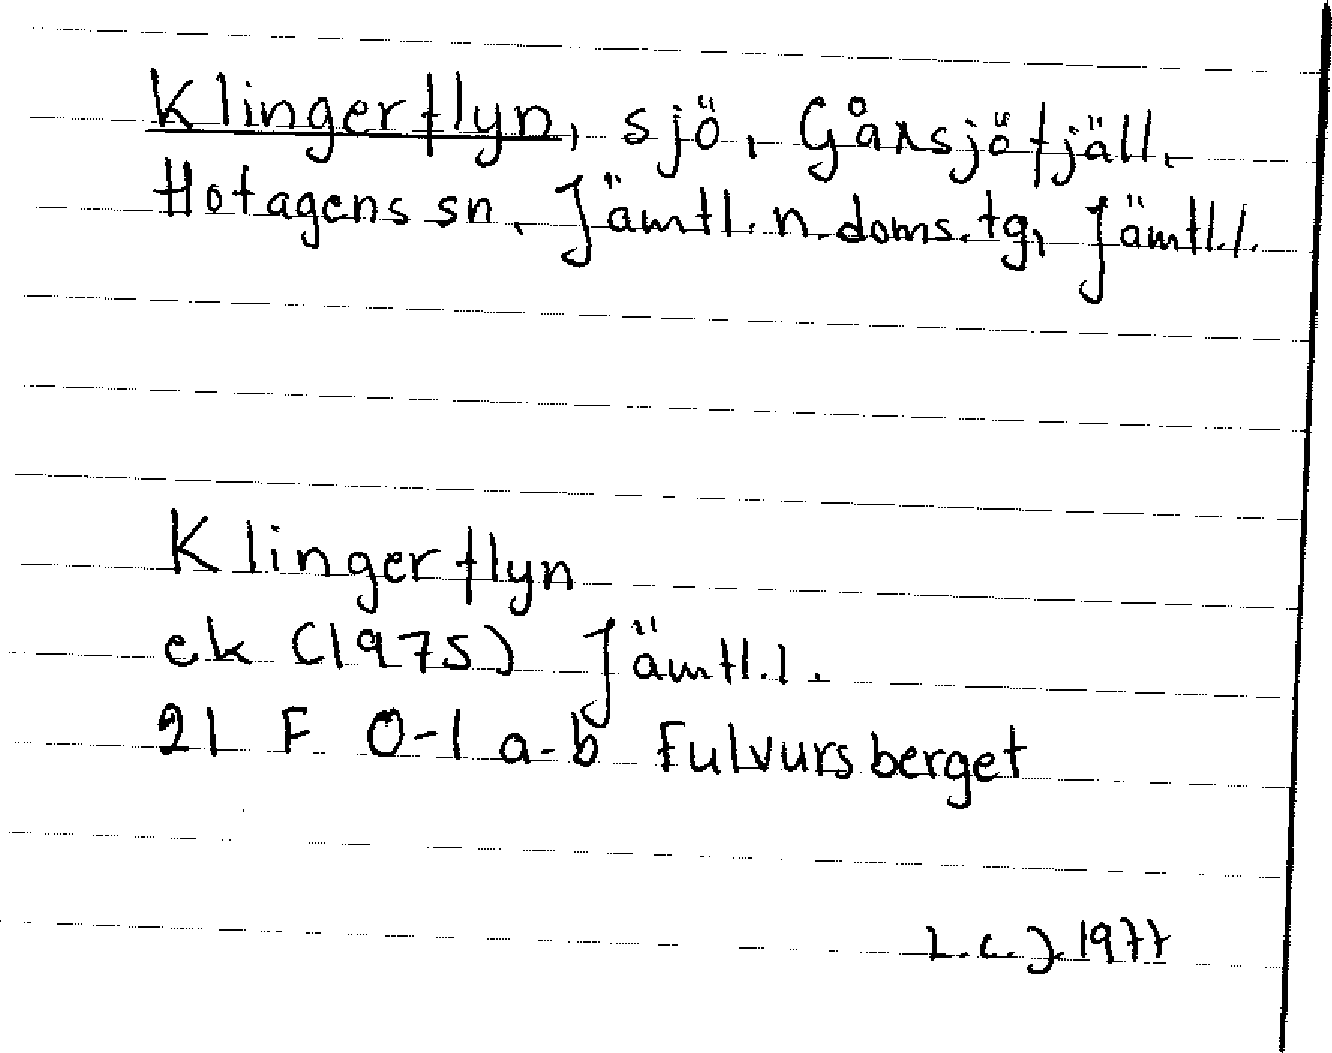 Klingerflyn, sjö, Gåxsjöfjäll,
Hotagens sn, Jämtl. n. doms. tg, Jämtl. l.
Klingerflyn
ek (1975) Jämtl. l.
21 F 0-1 a-b Fulvursberget
L.C.J. 1977